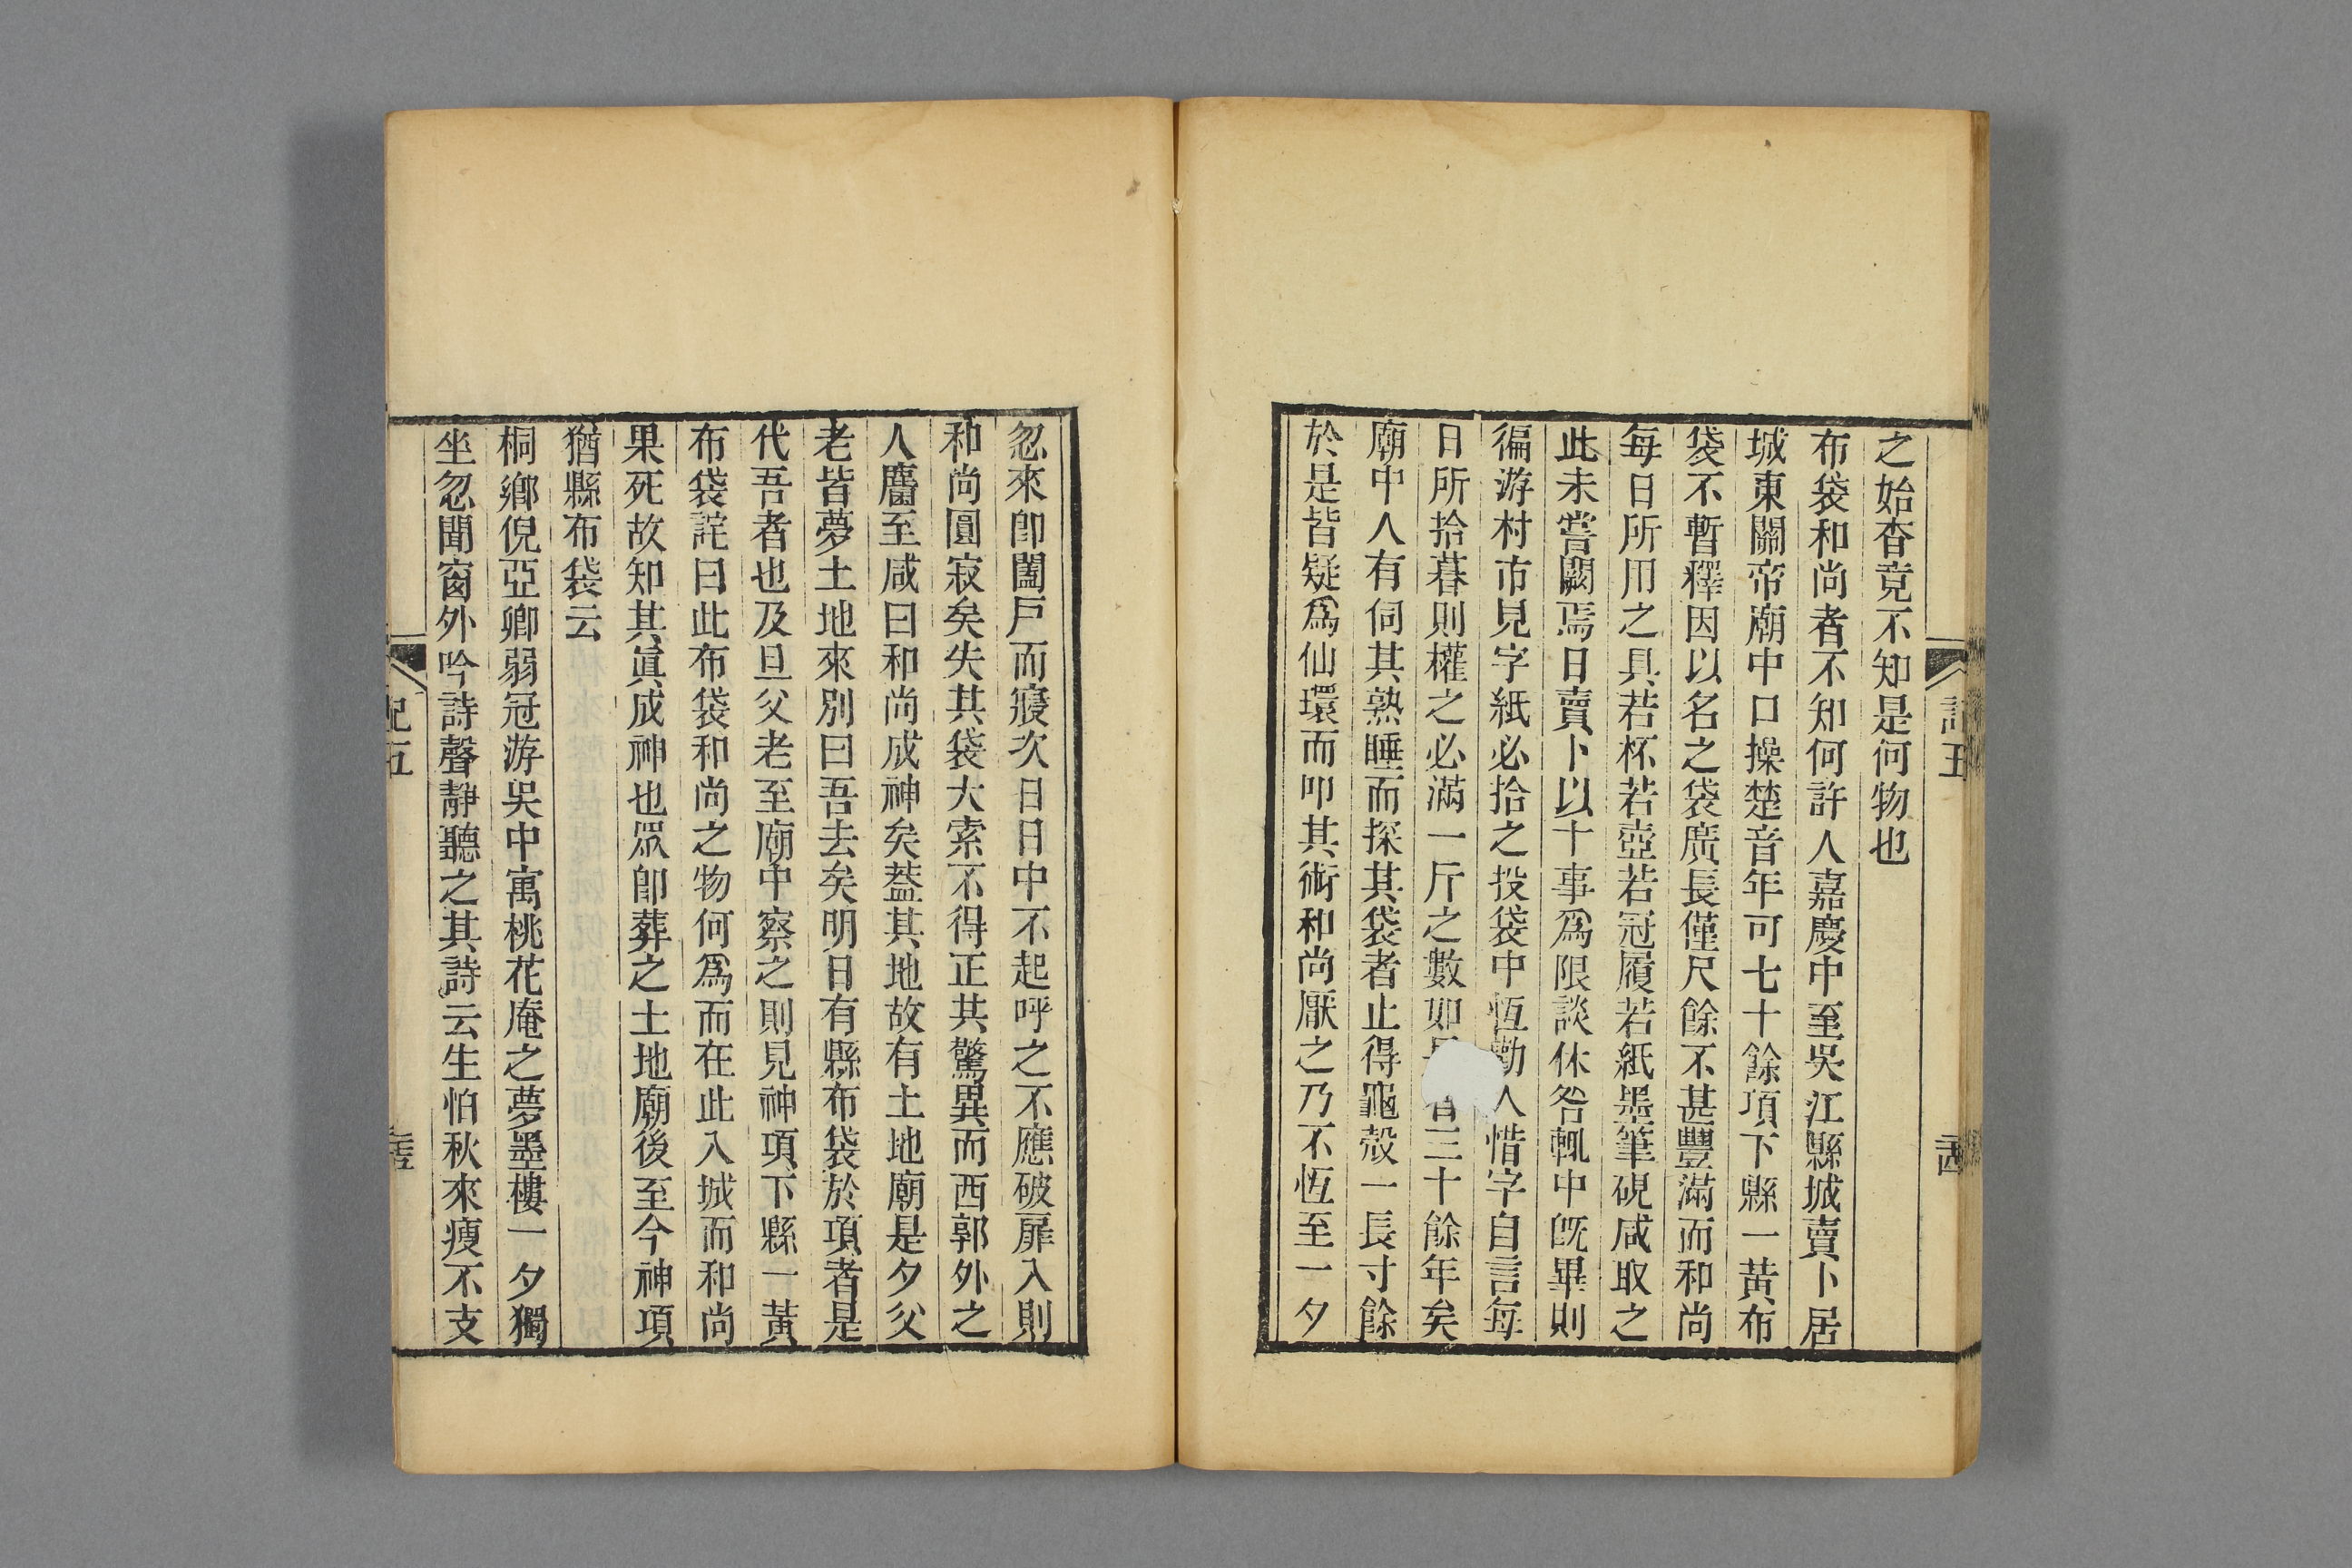 之始杳竟不知是何物也
布袋和尚者不知何許人嘉慶中至吳江縣城賣卜居
城東關帝廟中口操楚音年可七十餘項下縣一黃布
袋不暫釋因以名之袋廣長僅尺餘不甚豐滿而和尚
每日所用之具若杯若壺若冠履若紙墨筆硯咸取之
此未嘗闕焉日賣卜以十事爲限談休咎輒中旣畢則
徧游村市見字紙必拾之投袋中恆勸人惜字自言每
日所拾暮則權之必滿一斤之數如是者三十餘年矣
廟中人有伺其熟睡而探其袋者止得龜殼一長寸餘
於是皆疑爲仙環而叩其術和尚厭之乃不恆至一夕
忽來卽闔戶而寢次日日中不起呼之不應破扉入則
和尚圓寂矣失其袋大索不得正其驚異而西郭外之
人麕至咸曰和尚成神矣葢其地故有土地廟是夕父
老皆夢土地來別曰吾去矣明日有縣布袋於項者是
代吾者也及旦父老至廟中察之則見神項下縣一黃
布袋詫曰此布袋和尚之物何爲而在此入城而和尚
果死故知其眞成神也眾卽葬之土地廟後至今神項
猶縣布袋云
桐鄉倪亞卿弱冠游吳中寓桃花庵之夢墨樓一夕獨
坐忽聞窗外吟詩聲靜聽之其詩云生怕秋來瘦不支
記五